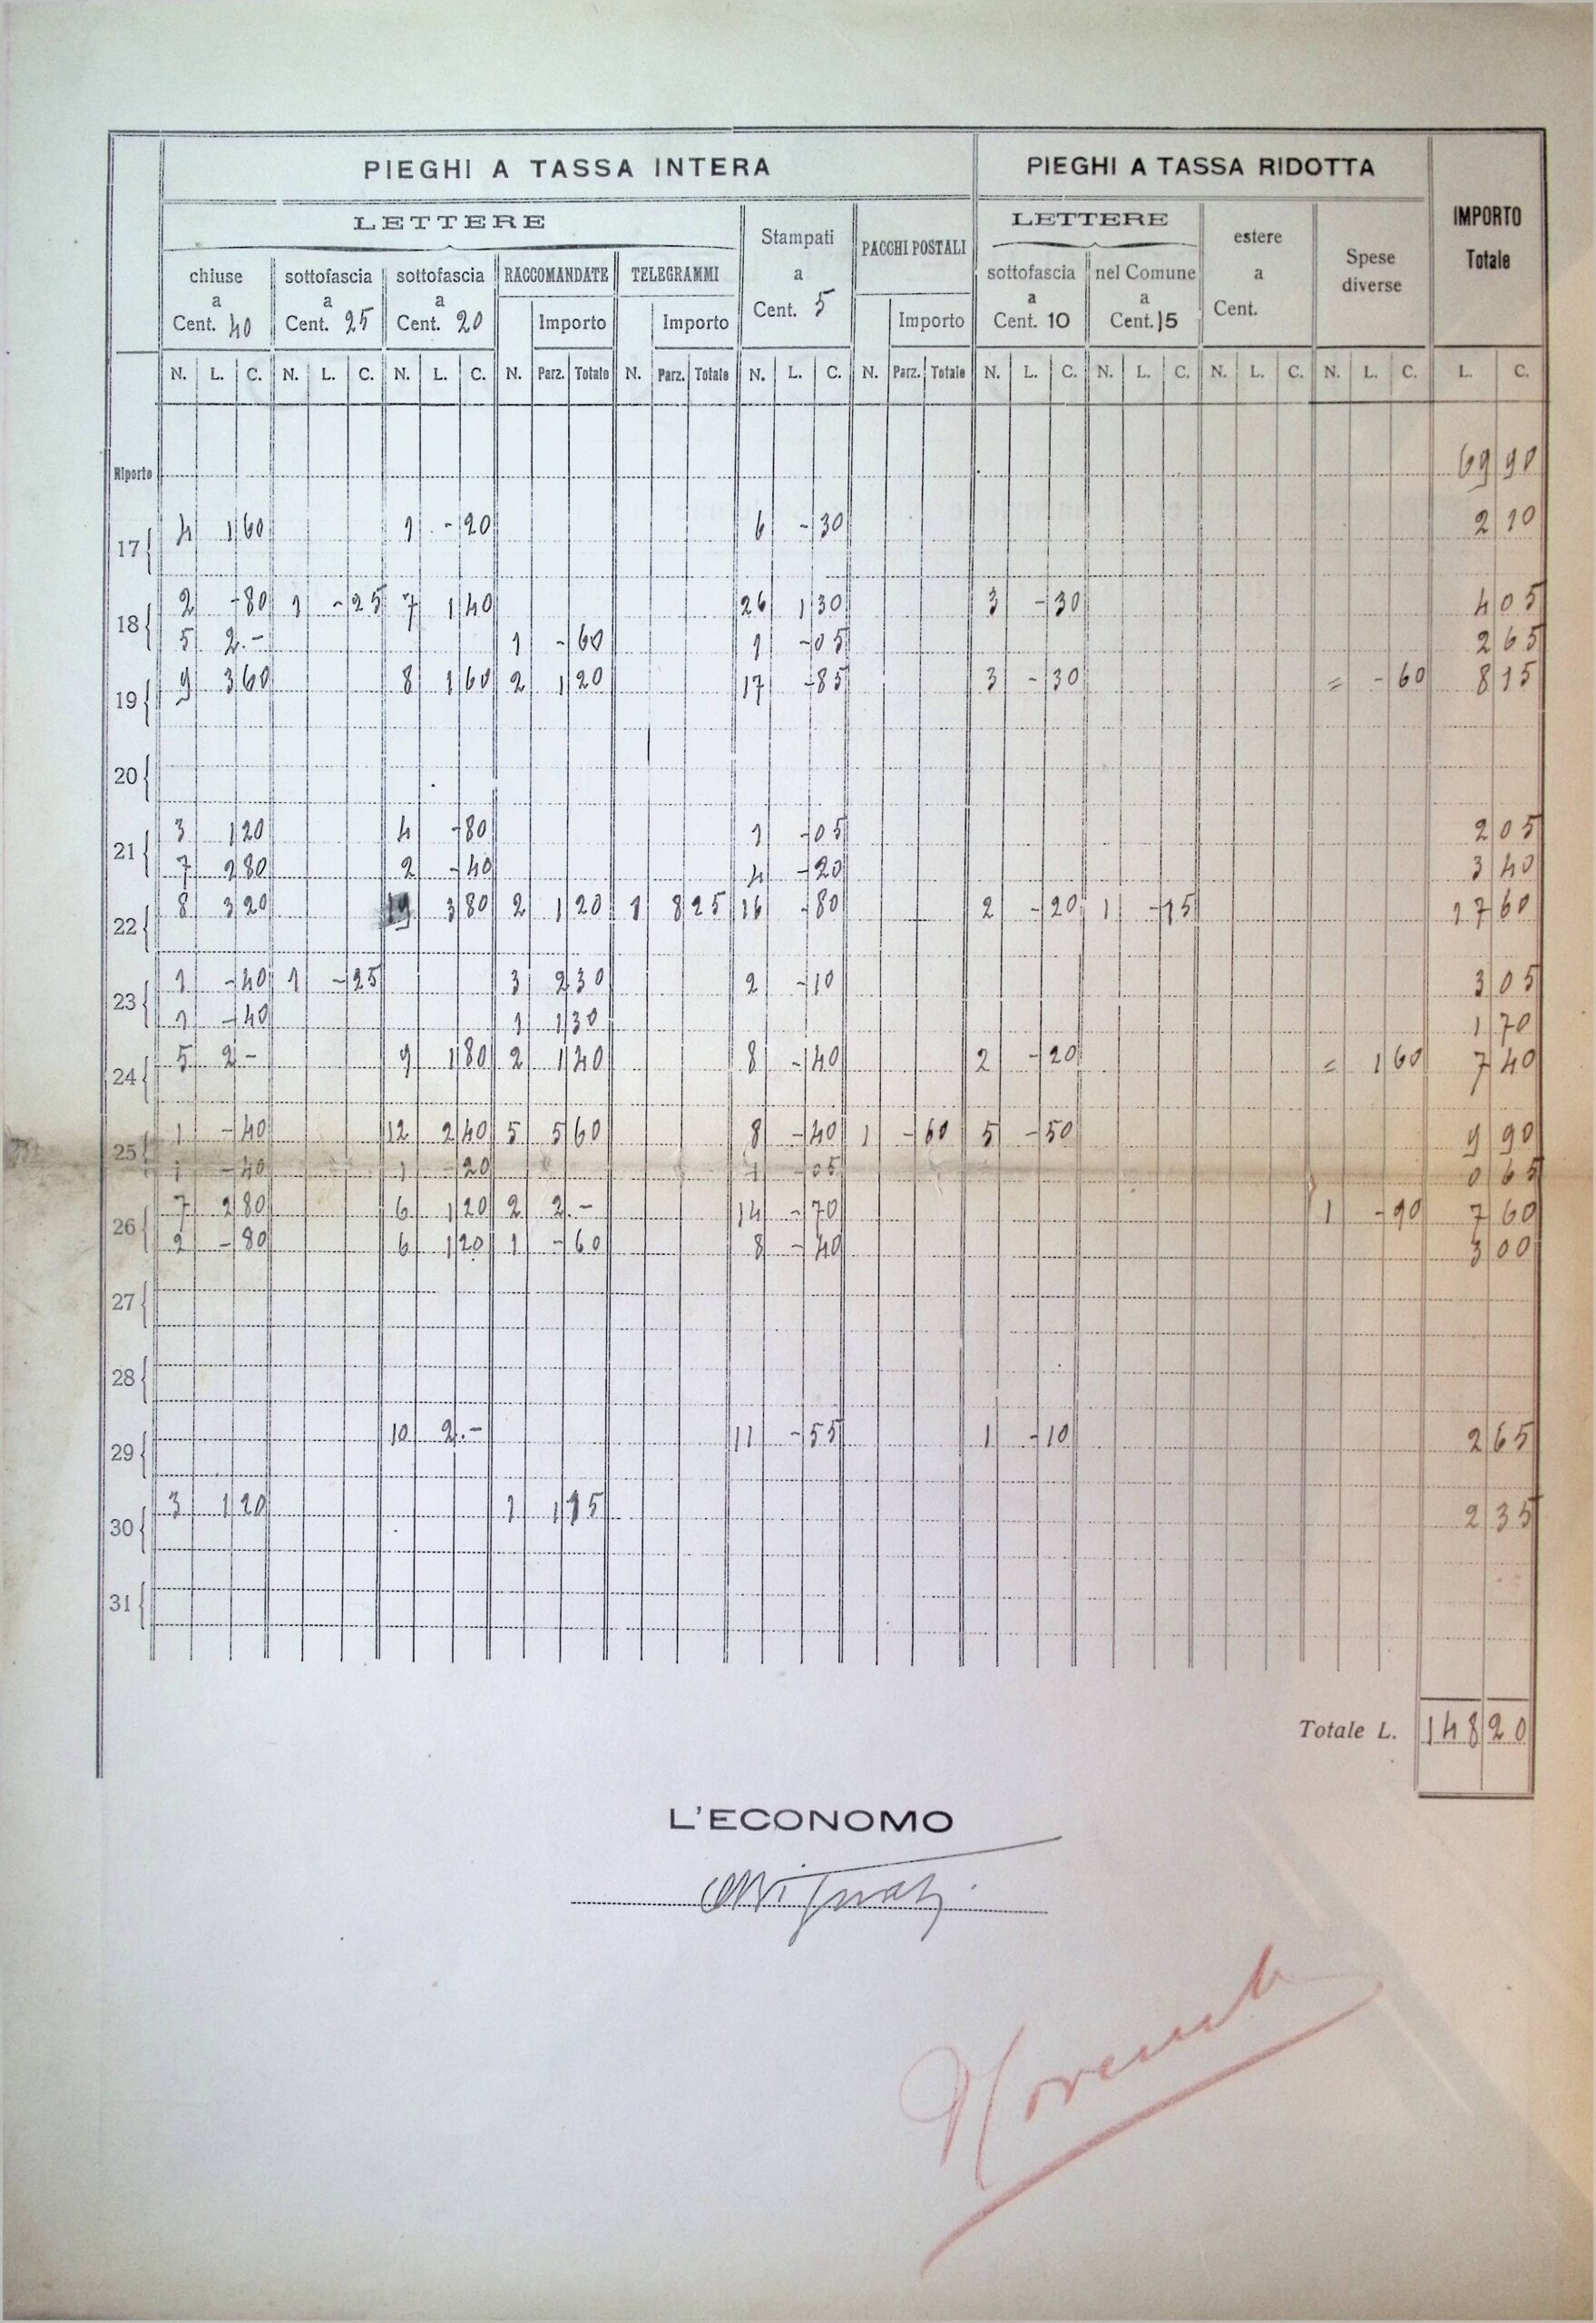 PIEGHI A TASSA INTERA PIEGHI A TASSA RIDOTTA IMPORTO Totale
LETTERE Stampati a Cent. 5 PACCHI POSTALI LETTERE estere a Cent. Spese diverse
chiuse a Cent. 40 sottofascia a Cent. 25 sottofascia a Cent. 20 RACCOMANDATE TELEGRAMMI sottofascia a Cent. 10 nel Comune a Cent. 15
Importo Importo Importo
N. L. C. N. L. C. N. L. C. N. Parz. Totale N. Parz. Totale N. L. C. N. Parz. Totale N. L. C. N. L. C. N. L. C. N. L. C. L. C.
Riporto 69 90
17 4 1 60 1 - 20 6 - 30 2 10
18 2 - 80 1 - 25 7 1 40 26 1 30 3 - 30 4 05
5 2 . - 1 - 60 1 - 05 2 65
19 9 3 60 8 1 60 2 1 20 17 - 85 3 - 30 = - 60 8 15
20
21 3 1 20 4 - 80 1 - 05 2 05
7 2 80 2 - 40 4 - 20 3 40
22 8 3 20 19 3 80 2 1 20 1 8 25 16 - 80 2 - 20 1 - 15 17 60
23 1 - 40 1 - 25 3 2 30 2 - 10 3 05
1 - 40 1 1 30 1 70
24 5 2 - 9 1 80 2 1 40 8 - 40 2 - 20 = 1 60 7 40
25 1 - 40 12 2 40 5 5 60 8 - 40 1 - 60 5 - 50 9 90
1 - 40 1 - 20 1 - 05 0 65
26 7 2 80 6 1 20 2 2 . - 14 - 70 1 - 90 7 60
2 - 80 6 1 20 1 - 60 8 - 40 3 00
27
28
29 10 2 . - 11 - 55 1 - 10 2 65
30 3 1 20 1 1 15 2 35
31
Totale L. 148 20
L'ECONOMO